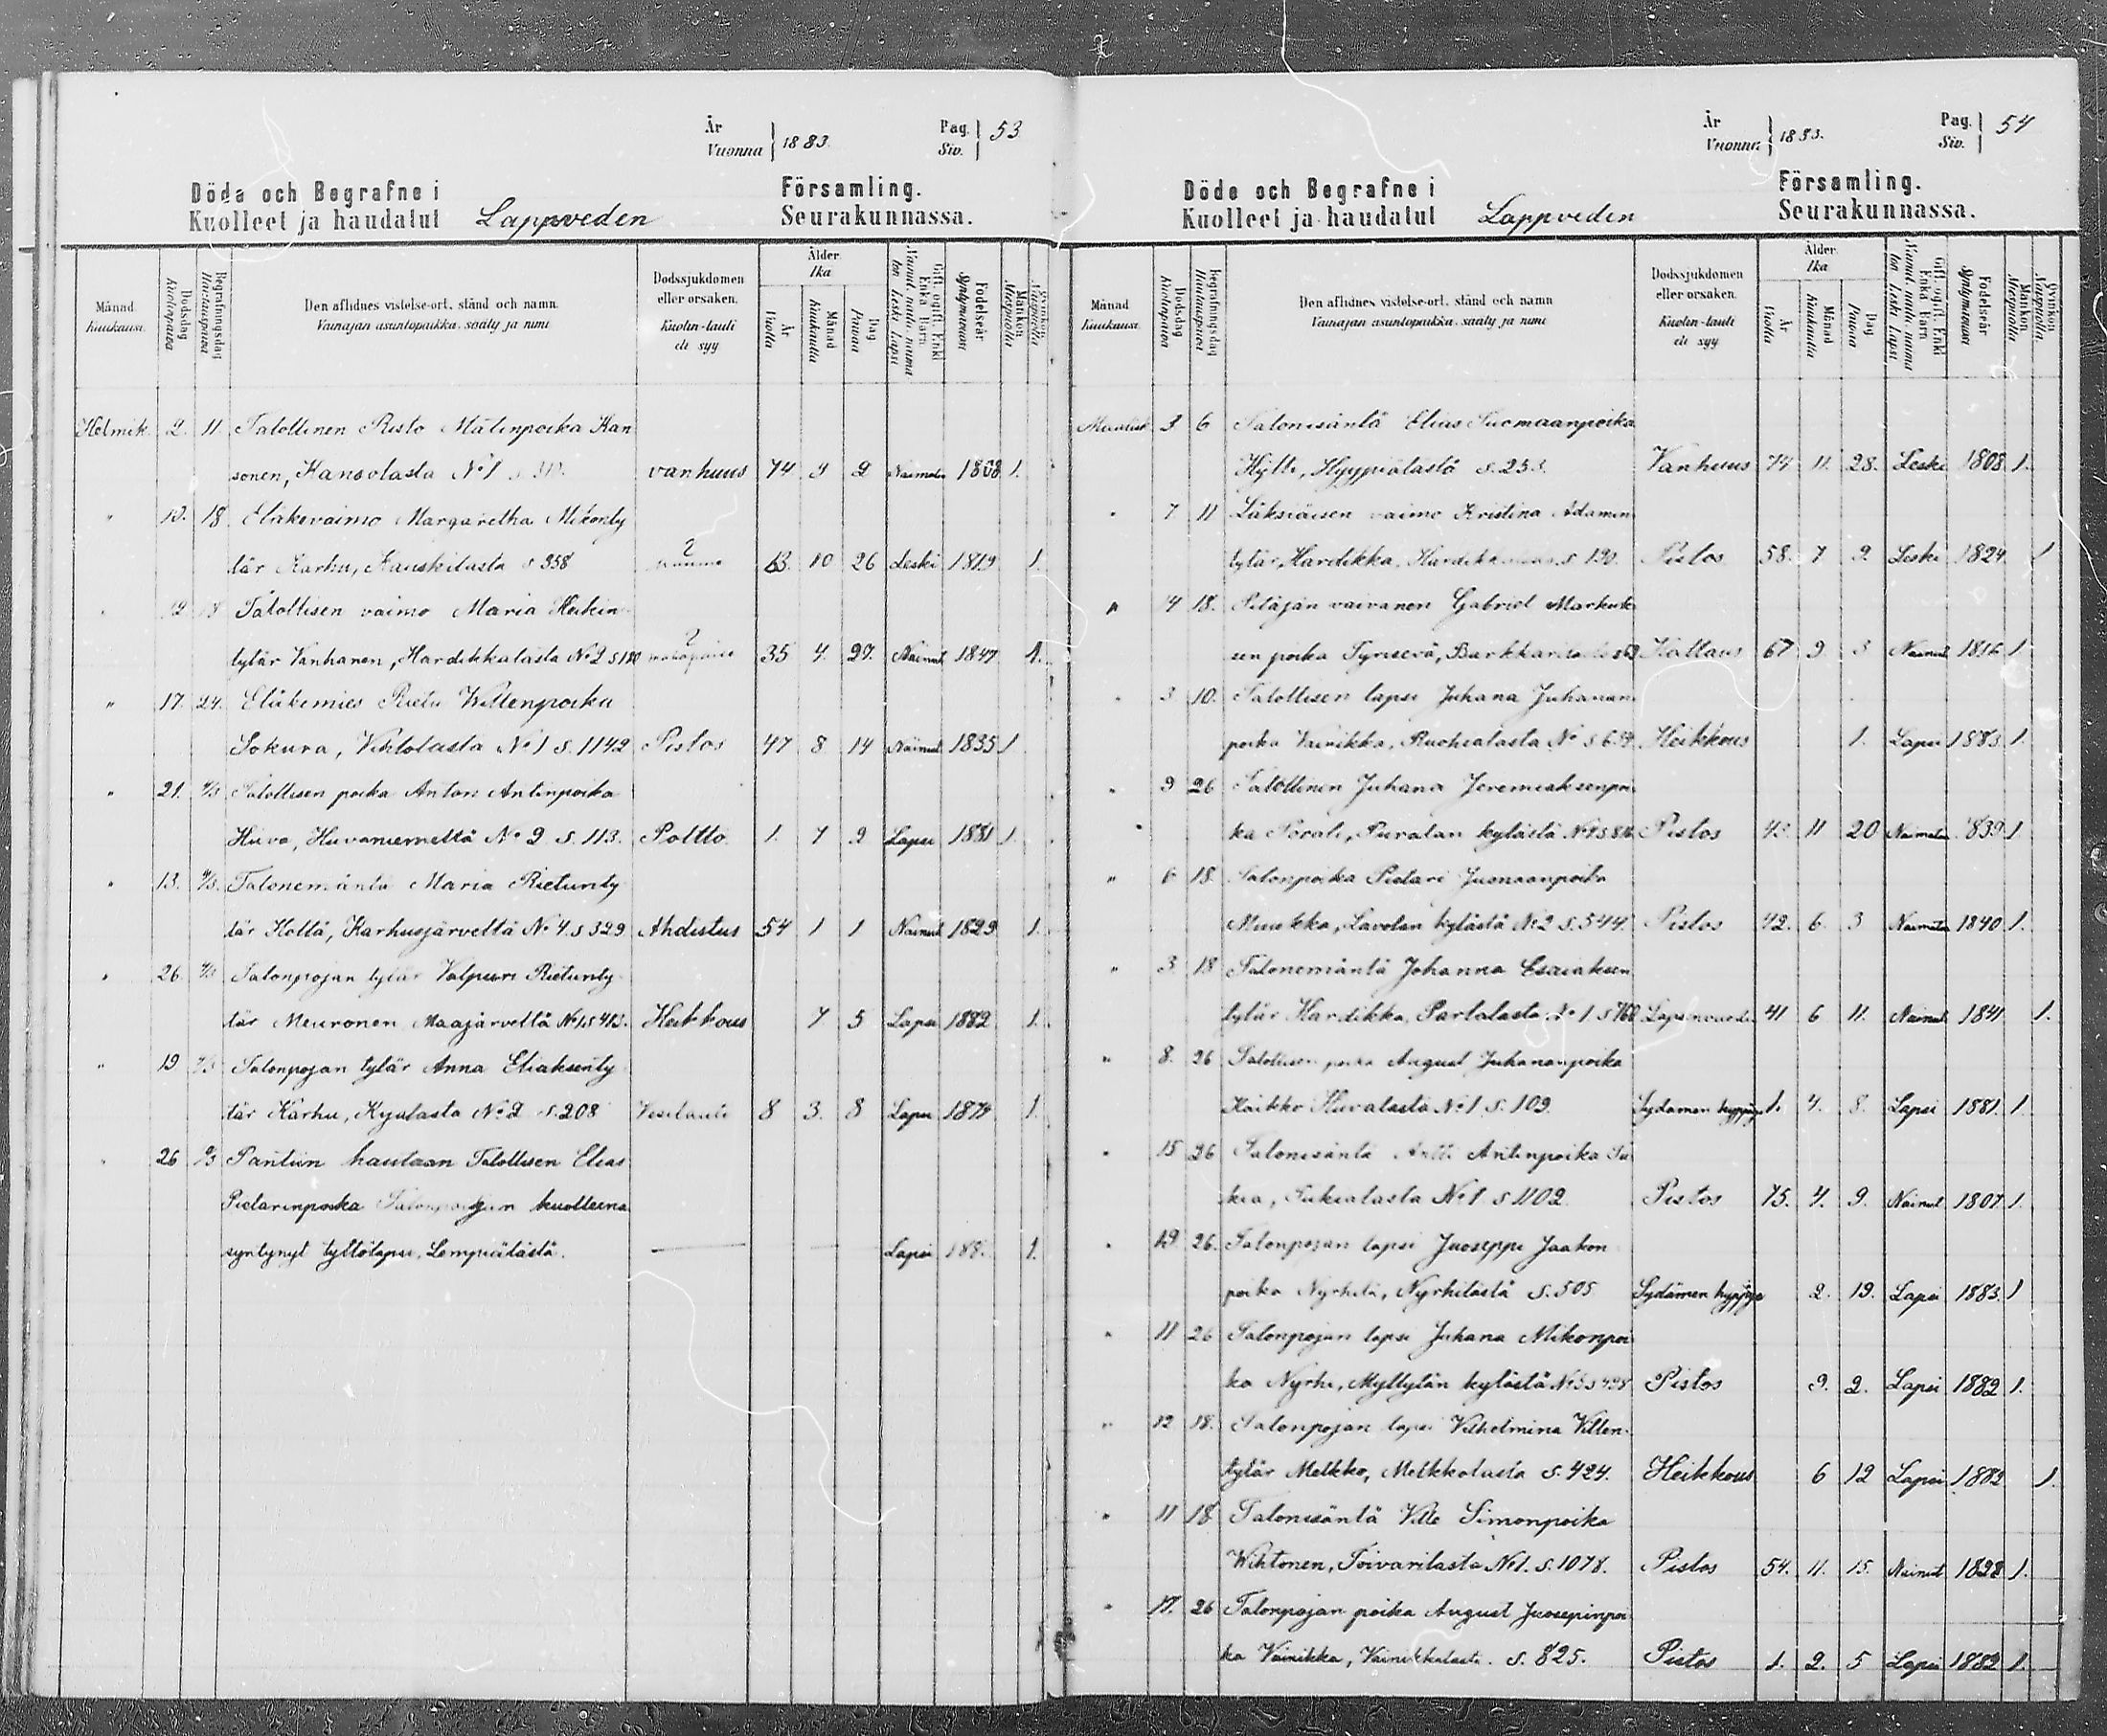 År
Vuonna 1883. Pag. Siv. 53
Döda och Begrafne i Församling.
Kuolleet ja haudatut Lappveden Seurakunnassa.
Månad Kuukausi. Dödsdag Kuolopäivä Begrafningsdag Hautauspäivä Den aflidnes vistelse-ort, stånd och namn. Vainajan asuntopaikka, sääty ja nimi Dödssjukdomen eller orsaken. Kuolin-tauti eli syy Ålder. Ikä År Vuotta Månad Kuukautta Dag Päivää Gift, ogift, Enkl. Enka Barn Nainut, naima-ton Leski Lapsi Födelseår Syntymävuosi Mankön Miespuolia Qvinkön Vaispuolia
Helmik. 2. 11. Talollinen Risto Matinpoika Kan
sonen, Kansolasta No 1 vanhuus 74 9 2 Naimaton 1808 1.
" 18. Eläkevaimo Margaretha Mikonty
tär Karhu, Kauskilasta s 358 ? 63. 10 26 Leski 1819 1.
" 12 18 Talollisen vaimo Maria Heikin
tytär Vanhanen, Hardikkalasta No 2 s 180 ? 35 4. 27. Nainut 1847 1.
" 17. 24. Eläkemies Rietu Willenpoika
Sokura, Vihtolasta No 1 s. 1142 Pistos 47 8 14 Nainut 1835 1
" 21. 4/3 Talollisen poika Anton Antinpoika
Huvo, Huvaniemeltä No 2 s. 113. Poltto. 1. 7 2 Lapsi 1881 1.
" 13. 4/3. Talonemäntä Maria Rietunty
tär Holtä, Karhusjärveltä No 4. s 329 Ahdistus 54 1 1 Nainut 1829 1.
" 26 4/3 Talonpojan tytär Valpuri Rietunty
tär Meuronen Maajärveltä No 1 s 413. Heikkous 7 5 Lapsi 1882 1.
" 19 Talonpojan tytär Anna Eliaksenty
tär Karhu, Kyalasta No 2 s. 208 Vesitauti 8 3. 8 Lapsi 1874 1.
" 26 Pantiin hautaan Talollisen Elias
Pietarinpoika kuolleena
syntynyt tyttölapsi, Lempiälästä. Lapsi 1.
År
Vuonna 1883. Pag. Siv. 54
Döde och Begrafne i Församling.
Kuolleet ja haudatut Lappveden Seurakunnassa.
Månad Kuukausi. Dödsdag Kuolopäivä Begrafningsdag Hautauspäivä Den aflidnes vistelse-ort, stånd och namn Vainajan asuntopaikka, sääty ja nimi Dödssjukdomen eller orsaken. Kuolin-tauti eli syy Ålder. Ikä År Vuotta Månad Kuukautta Dag Päivää Gift, ogift, Enkl. Enka Barn Nainut, naima-ton Leski Lapsi Födelseår Syntymävuosi Mankön Miespuolia Qvinkön Vaispuolia
Maalisk 3 6 Talonisäntä Elias Tuomaanpoika
Hyltt, Hyypiälästä s. 253. Vanhuus 74 11. 28. Leski 1808 1.
" 7 11 Läksiäisen vaimo Kristina Adamin
tytär, Hardikka, s 190. Pistos 58. 7 2. Leski 1824. 1
" 4 18. Pitäjän vaivanen Gabriel Markuk
sen poika Tyrisevä, Kattaus 67 9 3 Nainut 1816 1
" 3 10. Talollisen lapsi Juhana Juhanan
poika Vainikka, Ruohialasta No Heikkous 1. Lapsi 1883. 1.
" 9 26 Talollinen Juhana Jeremiaksenpoi
ka Porali, Puralan kylästä Pistos 11 20 Naimaton 1839 1.
" 6 18. Talonpoika Pietari Juonaanpoika
Muukka, Lavolan kylästä No 2 s. 544. Pistos 42. 6. 3 Naimaton 1840 1.
" 3 18 Talonemäntä Johanna Esaiaksen
tytär Hardikka, Partalasta No 1 s 760 41 6 11. Nainut 1841 1.
" 8. 26 Talollisen poika August Juhananpoika
Kaikko Huvalasta No 1. s. 109. Sydämen hyppyys 1. 4. 8. Lapsi 1881. 1
" 15 26 Talonisäntä Antti Antinpoika Tu
kia, Tukialasta No 1 s 1102. Pistos 75. 4. 9. Nainut 1807 1.
" 19 26. Talonpojan lapsi Juoseppi Jaakon
poika Nyrhilä, Nyrhilästä s. 505 Sydämen hyppyys 2. 19. Lapsi 1883. 1
" 11 26 Talonpojan lapsi Juhana Mikonpoi
ka Nyrhi, Myllylän kylästä No 3 s 498 Pistos 9. 2. Lapsi 1882 1.
" 12 18. Talonpojan lapsi Vilhelmina Villen
tytär Melkko, Melkkolasta s. 424. Heikkous 6 12 Lapsi 1882 1.
" 11 18 Talonisäntä Ville Simonpoika
Wihtonen, Toivarilasta No 1. s. 1078. Pistos 54. 11. 15. Nainut 1828 1.
" 17. 26 Talonpojan poika August Juosepinpoi
ka Vainikka, Vainikkalasta. s. 825. Pistos 1. 2. 5 Lapsi 1882 1.